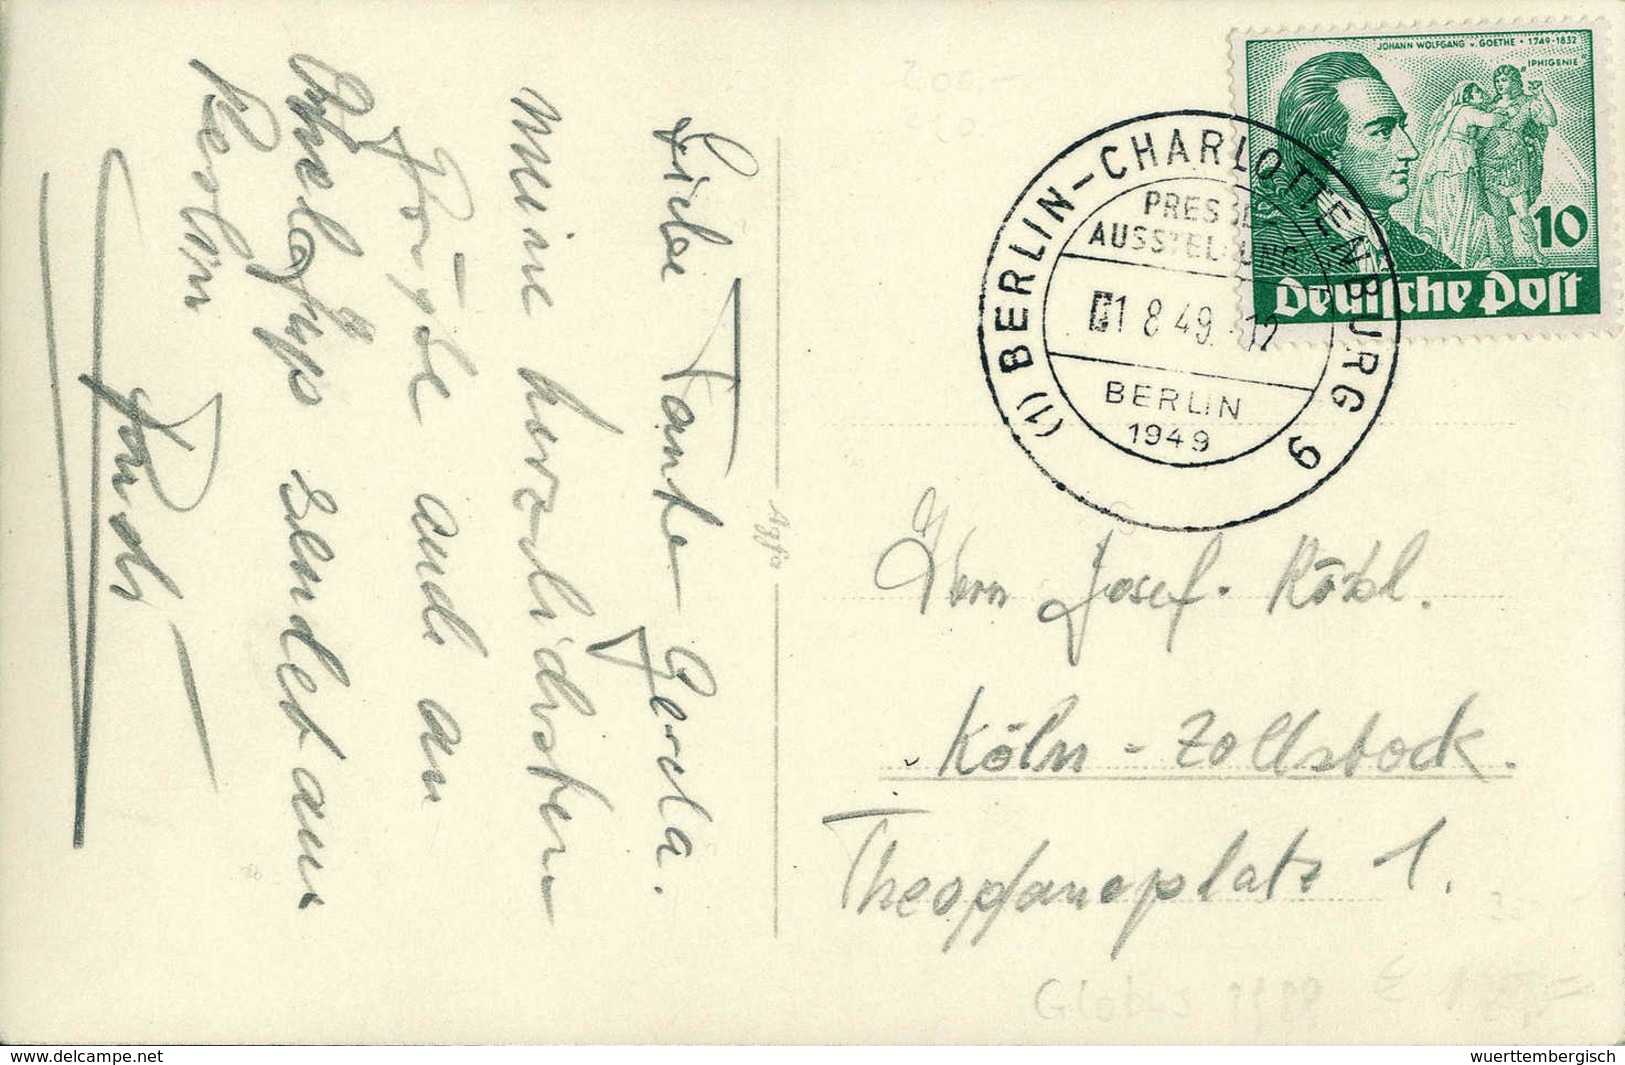 JOHANN WOLFGANG v. GOETHE · 1749-1832
"IPHIGENIE"
10
Deutsche Post
(1) BERLIN-CHARLOTTENBURG 9
PRESSE
AUSSTELLUNG
1 8 49. 12
BERLIN
1949
Herrn Josef
Köln-Zollstock.
Theophanoplatz 1.
Liebe Tante Gerda.
Meine herzlichsten
Grüße auch an
sendet aus
Berlin
Agfa
delcampe.net
wuerttembergisch